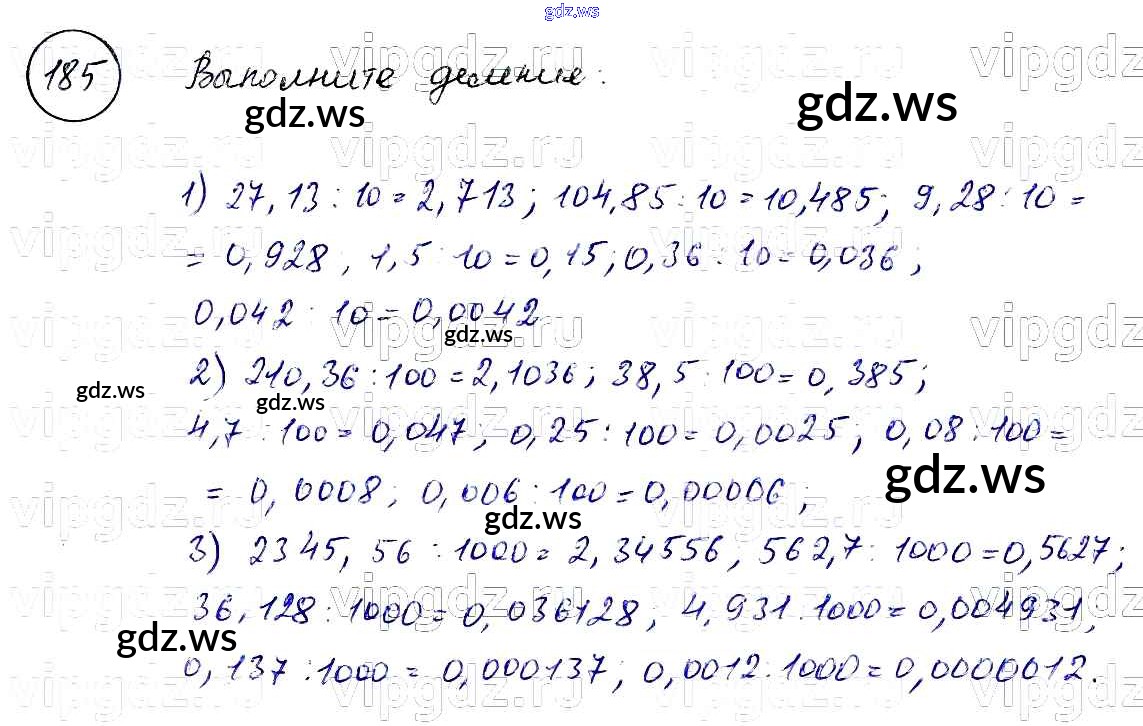 gdz.ws
185 Выполните деление:
gdz.ws
gdz.ws
vipgdz.ru
1) 27,13 : 10 = 2,713; 104,85 : 10 = 10,485; 9,28 : 10 =
= 0,928, 1,5 : 10 = 0,15; 0,36 : 10 = 0,036;
0,042 : 10 = 0,0042
gdz.ws
2) 210,36 : 100 = 2,1036; 38,5 : 100 = 0,385;
gdz.ws
gdz.ws
4,7 : 100 = 0,047; 0,25 : 100 = 0,0025; 0,08 : 100 =
gdz.ws
= 0,0008; 0,006 : 100 = 0,00006;
gdz.ws
3) 2345,56 : 1000 = 2,34556, 562,7 : 1000 = 0,5627;
36,128 : 1000 = 0,036128; 4,931 : 1000 = 0,004931,
gdz.ws
0,137 : 1000 = 0,000137; 0,0012 : 1000 = 0,0000012.